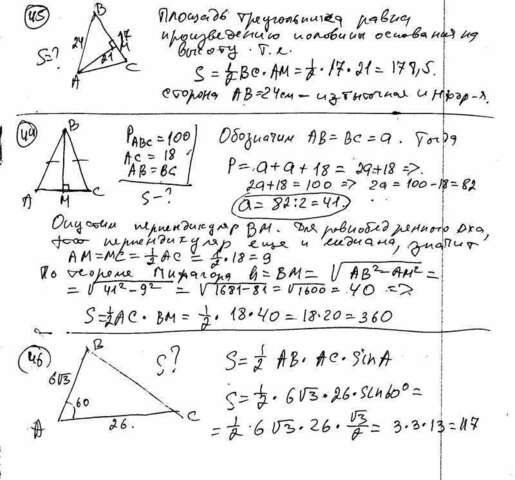 45
B
24
17
M
21
A
C
S=?
Площадь треугольника равна
произведению половины основания на
высоту. Т.е.
S = 1/2 BC · AM = 1/2 · 17 · 21 = 178,5.
сторона AB=24см – избыточная информ-я.
44
B
A
M
C
P_ABC = 100
AC = 18
AB = BC
S - ?
Обозначим AB = BC = a. Тогда
P = a + a + 18 = 2a + 18 =>
2a + 18 = 100 => 2a = 100 - 18 = 82
a = 82 : 2 = 41.
Опустим перпендикуляр BM. Для равнобедренного
этот перпендикуляр еще и медиана, значит
AM = MC = 1/2 AC = 1/2 · 18 = 9
По теореме Пифагора h = BM = √AB² - AM² =
= √41² - 9² = √1681 - 81 = √1600 = 40 =>
S = 1/2 AC · BM = 1/2 · 18 · 40 = 18 · 20 = 360
46
B
6√3
60
A
26
C
S?
S = 1/2 AB · AC · sin A
S = 1/2 · 6√3 · 26 · sin 60° =
= 1/2 · 6√3 · 26 · √3/2 = 3 · 3 · 13 = 117